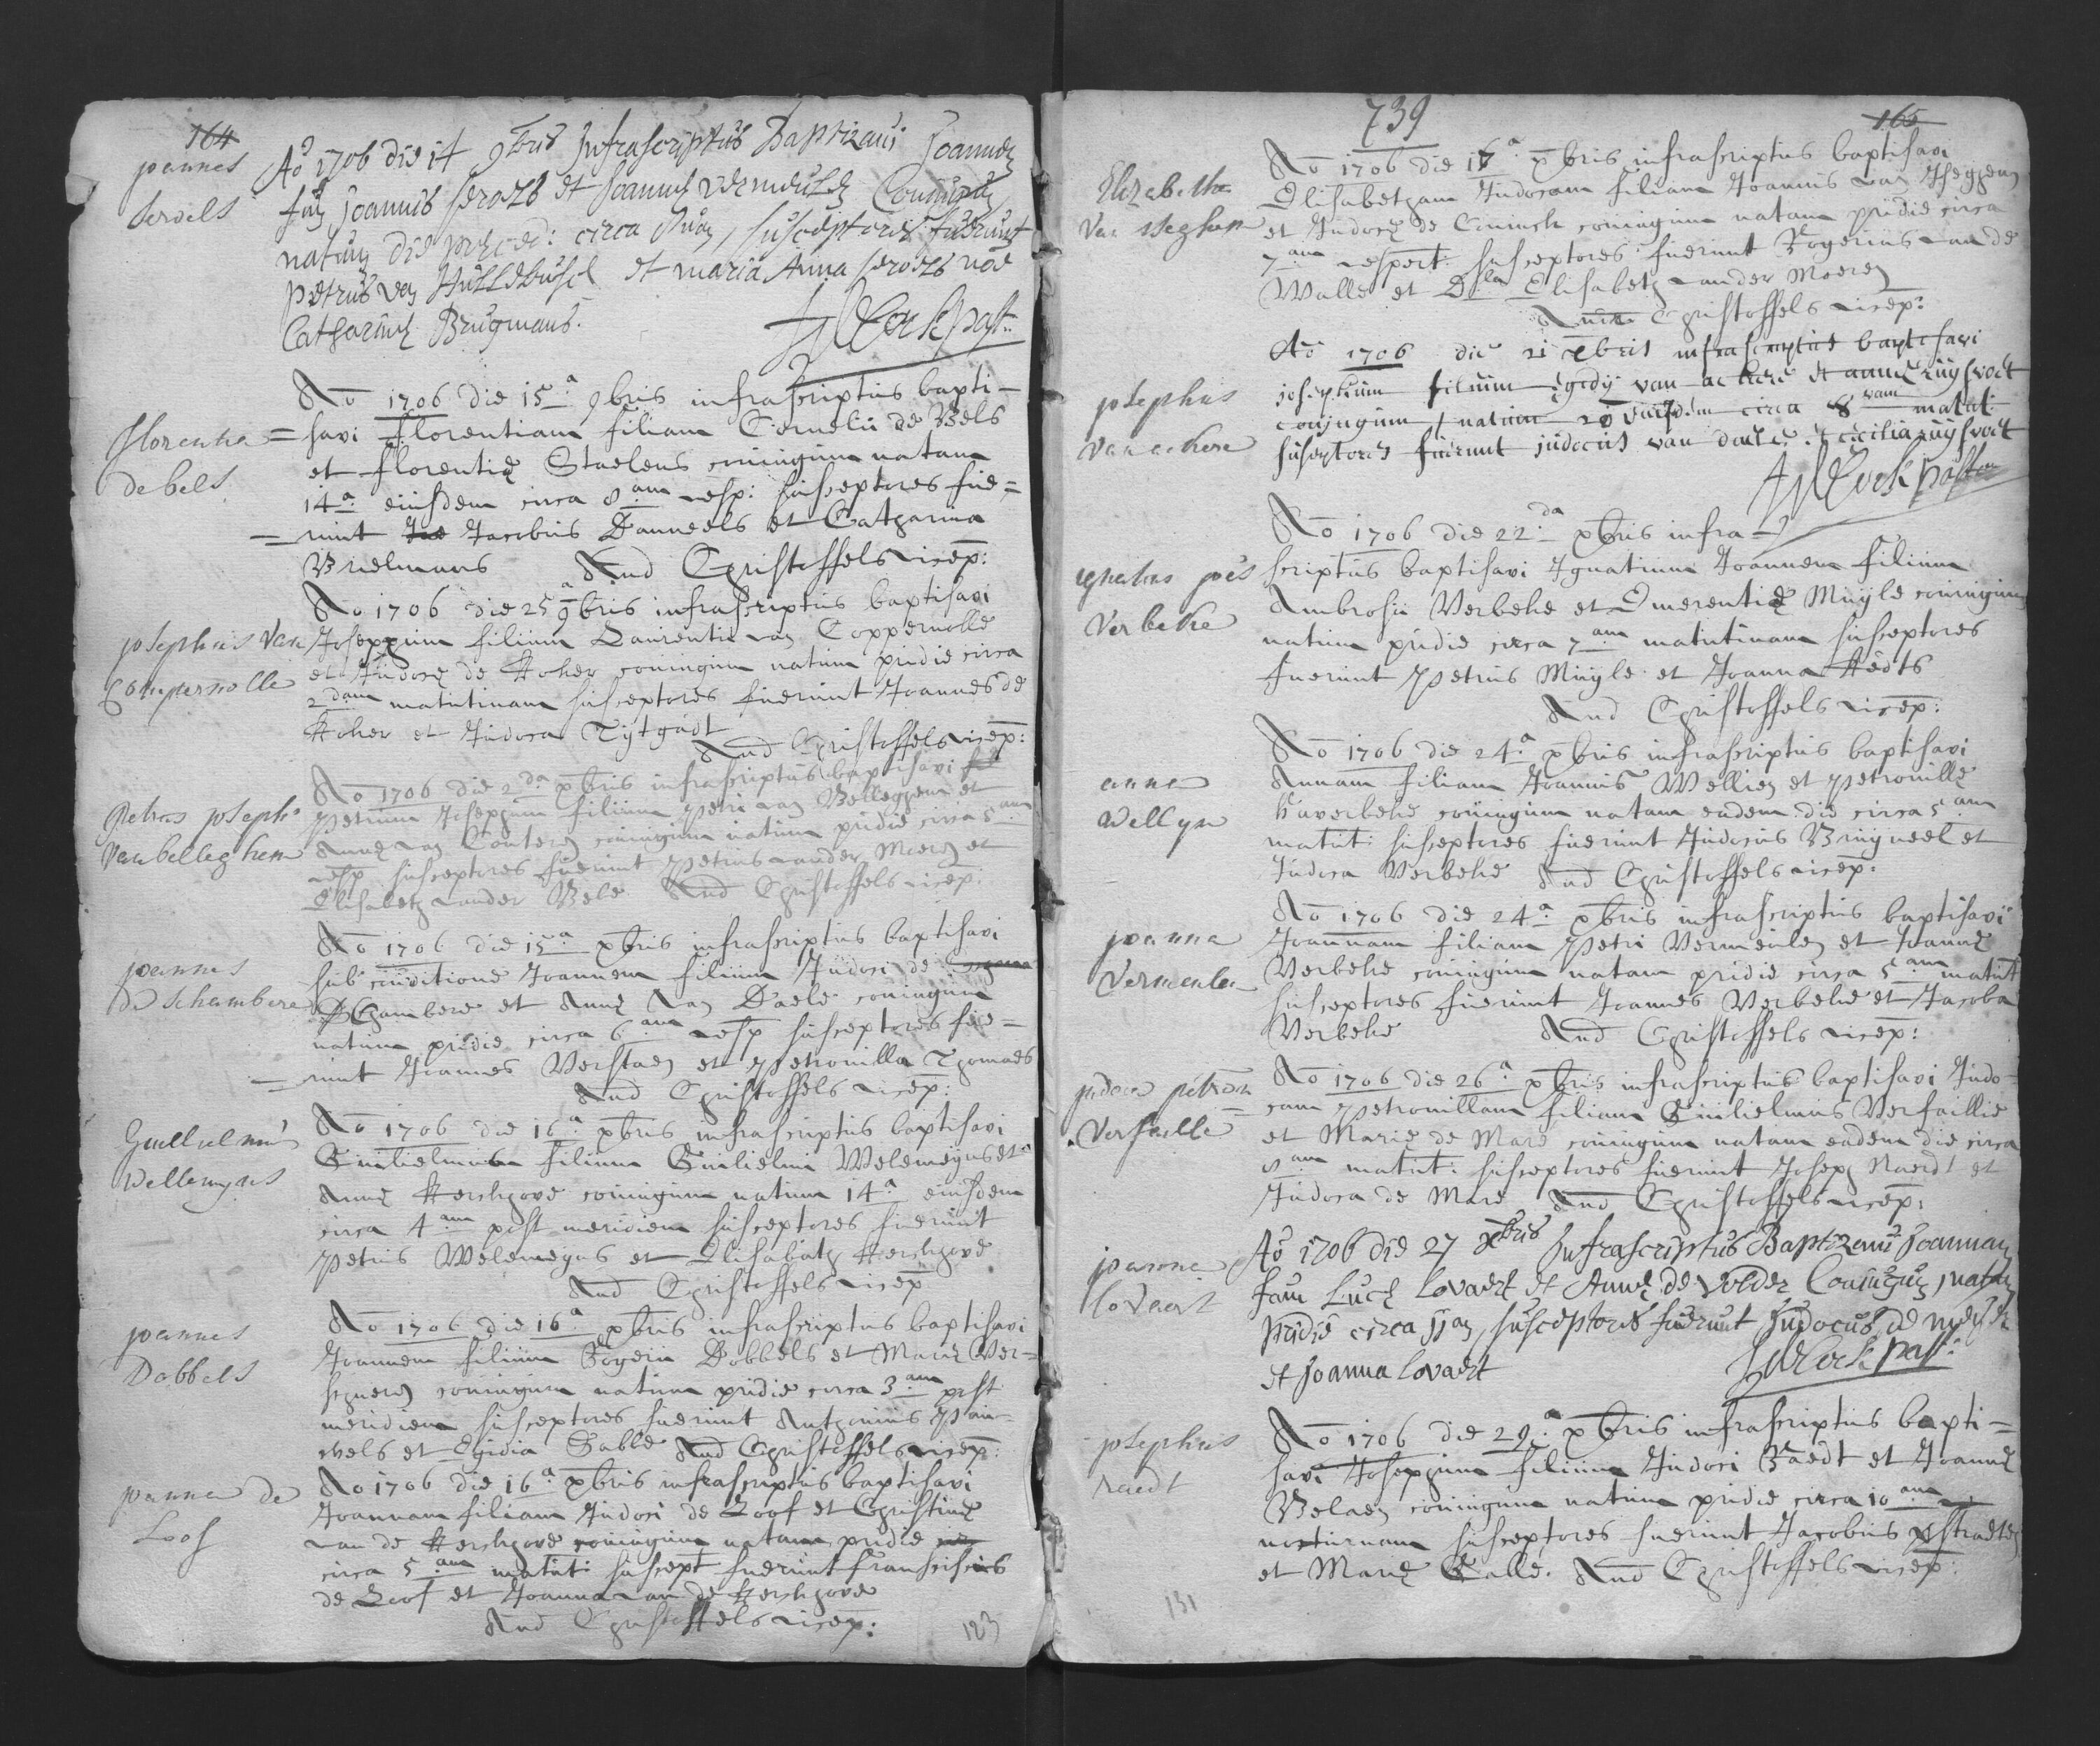 164
joannes
servels
Aº 1706 die 14 9bris Infrascriptus Baptizavi Joannem
fum Joannis servels et Joannæ vermeulen Coniugum
natum die præced: circa 8vam, susceptores fuerunt
petrus van Hullebusch et maria Anna servels noe
Catharinæ Brugmans.
J De Cock past:
Florentia
de bels
Aº 1706 die 15ª 9bris infrascriptus bapti-
savi florentiam filiam Cornelii de Bels
et florentiæ Staelens coniugum natam
14ª eiusdem circa 8am vesp: susceptores fue=
=runt Jacobus Danneels et Catharina
Brielmans And Christoffels vicep:
josephus Van
Coupernolle
Aº 1706 die 25ª 9bris infrascriptus baptisavi
Josephum filium Laurentii van Coppernolle
et Judocæ de Koker coniugum natum pridie circa
2dam matutinam susceptores fuerunt Joannes de
Koker et Judoca Tytgadt
And Christoffels vicep:
Petrus joseph
Van belleghem
Aº 1706 die 2da xbris infrascriptus baptisavi
Petrum Josephum filium Petri van Belleghem et
Annæ van Couteren coniugum natum pridie circa 5am
vesp susceptores fuerunt Petrus vander Meeren et
Elisabeth vander Bele And Christoffels vicep:
joannes
de schambere
Aº 1706 die 15ª xbris infrascriptus baptisavi
sub conditione Joannem filium Judoci de
schambere et Annæ van Daele coniugum
natum pridie circa 6am vesp susceptores fue=
=runt Joannes Verstaen et Petronilla Thomaes
And Christoffels vicep:
Guillielmus
Wellemyns
Aº 1706 die 16ª xbris infrascriptus baptisavi
Guilielmum filium Guilielmi Welemeyns et
Annæ Kerckhove coniugum natum 14ª eiusdem
circa 4am post meridiem susceptores fuerunt
Petrus Welemeyns et Elisabeth Kerckhove
And Christoffels vicep
joannes
Dobbels
Aº 1706 die 16ª xbris infrascriptus baptisavi
Joannem filium Rogerii Dobbels et Mariæ Ver-
schueren coniugum natum pridie circa 3am post
meridiem susceptores fuerunt Anthonius Pau-
wels et Egidia Sabbe And Christoffels vicep:
joanna de
Loof
Aº 1706 die 16ª xbris infrascriptus baptisavi
Joannam filiam Judoci de Loof et Christinæ
van de Kerckhove coniugum natam pridie
circa 5am matut: suscept fuerunt franciscus
de Loof et Joanna van de Kerckhove
And Christoffels vicep:
123
739
165
Elizabetha
Van steghen
Aº 1706 die 17ª xbris infrascriptus baptisavi
Elisabetham Judocam filiam Joannis van Steghen
et Judocæ de Coninck coniugum natam pridie circa
7am vespert: susceptores fuerunt Rogerius van de
Walle et Dlla Elisabeth vander Meeren
And Christoffels vicep:
josephus
Van ackere
Aº 1706 die 21 xbris infrascriptus baptisavi
josephum filium egidij van ackere et annæ ruysvoet
conjugum natum 20 eiusdem circa 8vam matut:
susceptores fuerunt judocus van daele et cicilia ruysvoet
J De Cock pastor
ignatius joes
Verbeke
Aº 1706 die 22da xbris infra-
scriptus baptisavi Ignatium Joannem filium
Ambrosii Verbeke et Emerentiæ Muyle coniugum
natum pridie circa 7am matutinam susceptores
fuerunt Petrus Muyle et Joanna Aedts
And Christoffels vicep:
anna
Wellyn
Aº 1706 die 24ª xbris infrascriptus baptisavi
Annam filiam Joannis Wellien et Petronillæ
Haverbeke coniugum natam eadem die circa 5am
matut: susceptores fuerunt Judocus Bruyneel et
Judoca Verbeke And Christoffels vicep:
joanna
Vermeulen
Aº 1706 die 24ª xbris infrascriptus baptisavi
Joannam filiam Petri Vermeulen et Joannæ
Verbeke coniugum natam pridie circa 5am matut
susceptores fuerunt Joannes Verbeke et Jacoba
Verbeke And Christoffels vicep:
judoca petron
Verfaille
Aº 1706 die 26ª xbris infrascriptus baptisavi Judo-
cam Petronillam filiam Guilielmus Verfaillie
et Mariæ de Maré coniugum natam eadem die circa
8am matut: susceptores fuerunt Joseph Naerdt et
Judoca de Maré And Christoffels vicep:
joanna
lovaert
Aº 1706 die 27 xbris Infrascriptus Baptizavi Joannam
fam Lucæ lovaert et Annæ de volder Coniugum, natam
pridie circa 11am, susceptores fuerunt Judocus de meyer
et joanna lovaert J De Cock past:
josephus
raedt
Aº 1706 die 29ª xbris infrascriptus bapti=
savi Josephum filium Judoci Raedt et Joannæ
Velaen coniugum natum pridie circa 10am
nocturnam susceptores fuerunt Jacobus
et Mariæ Calle. And Christoffels vicep:
131